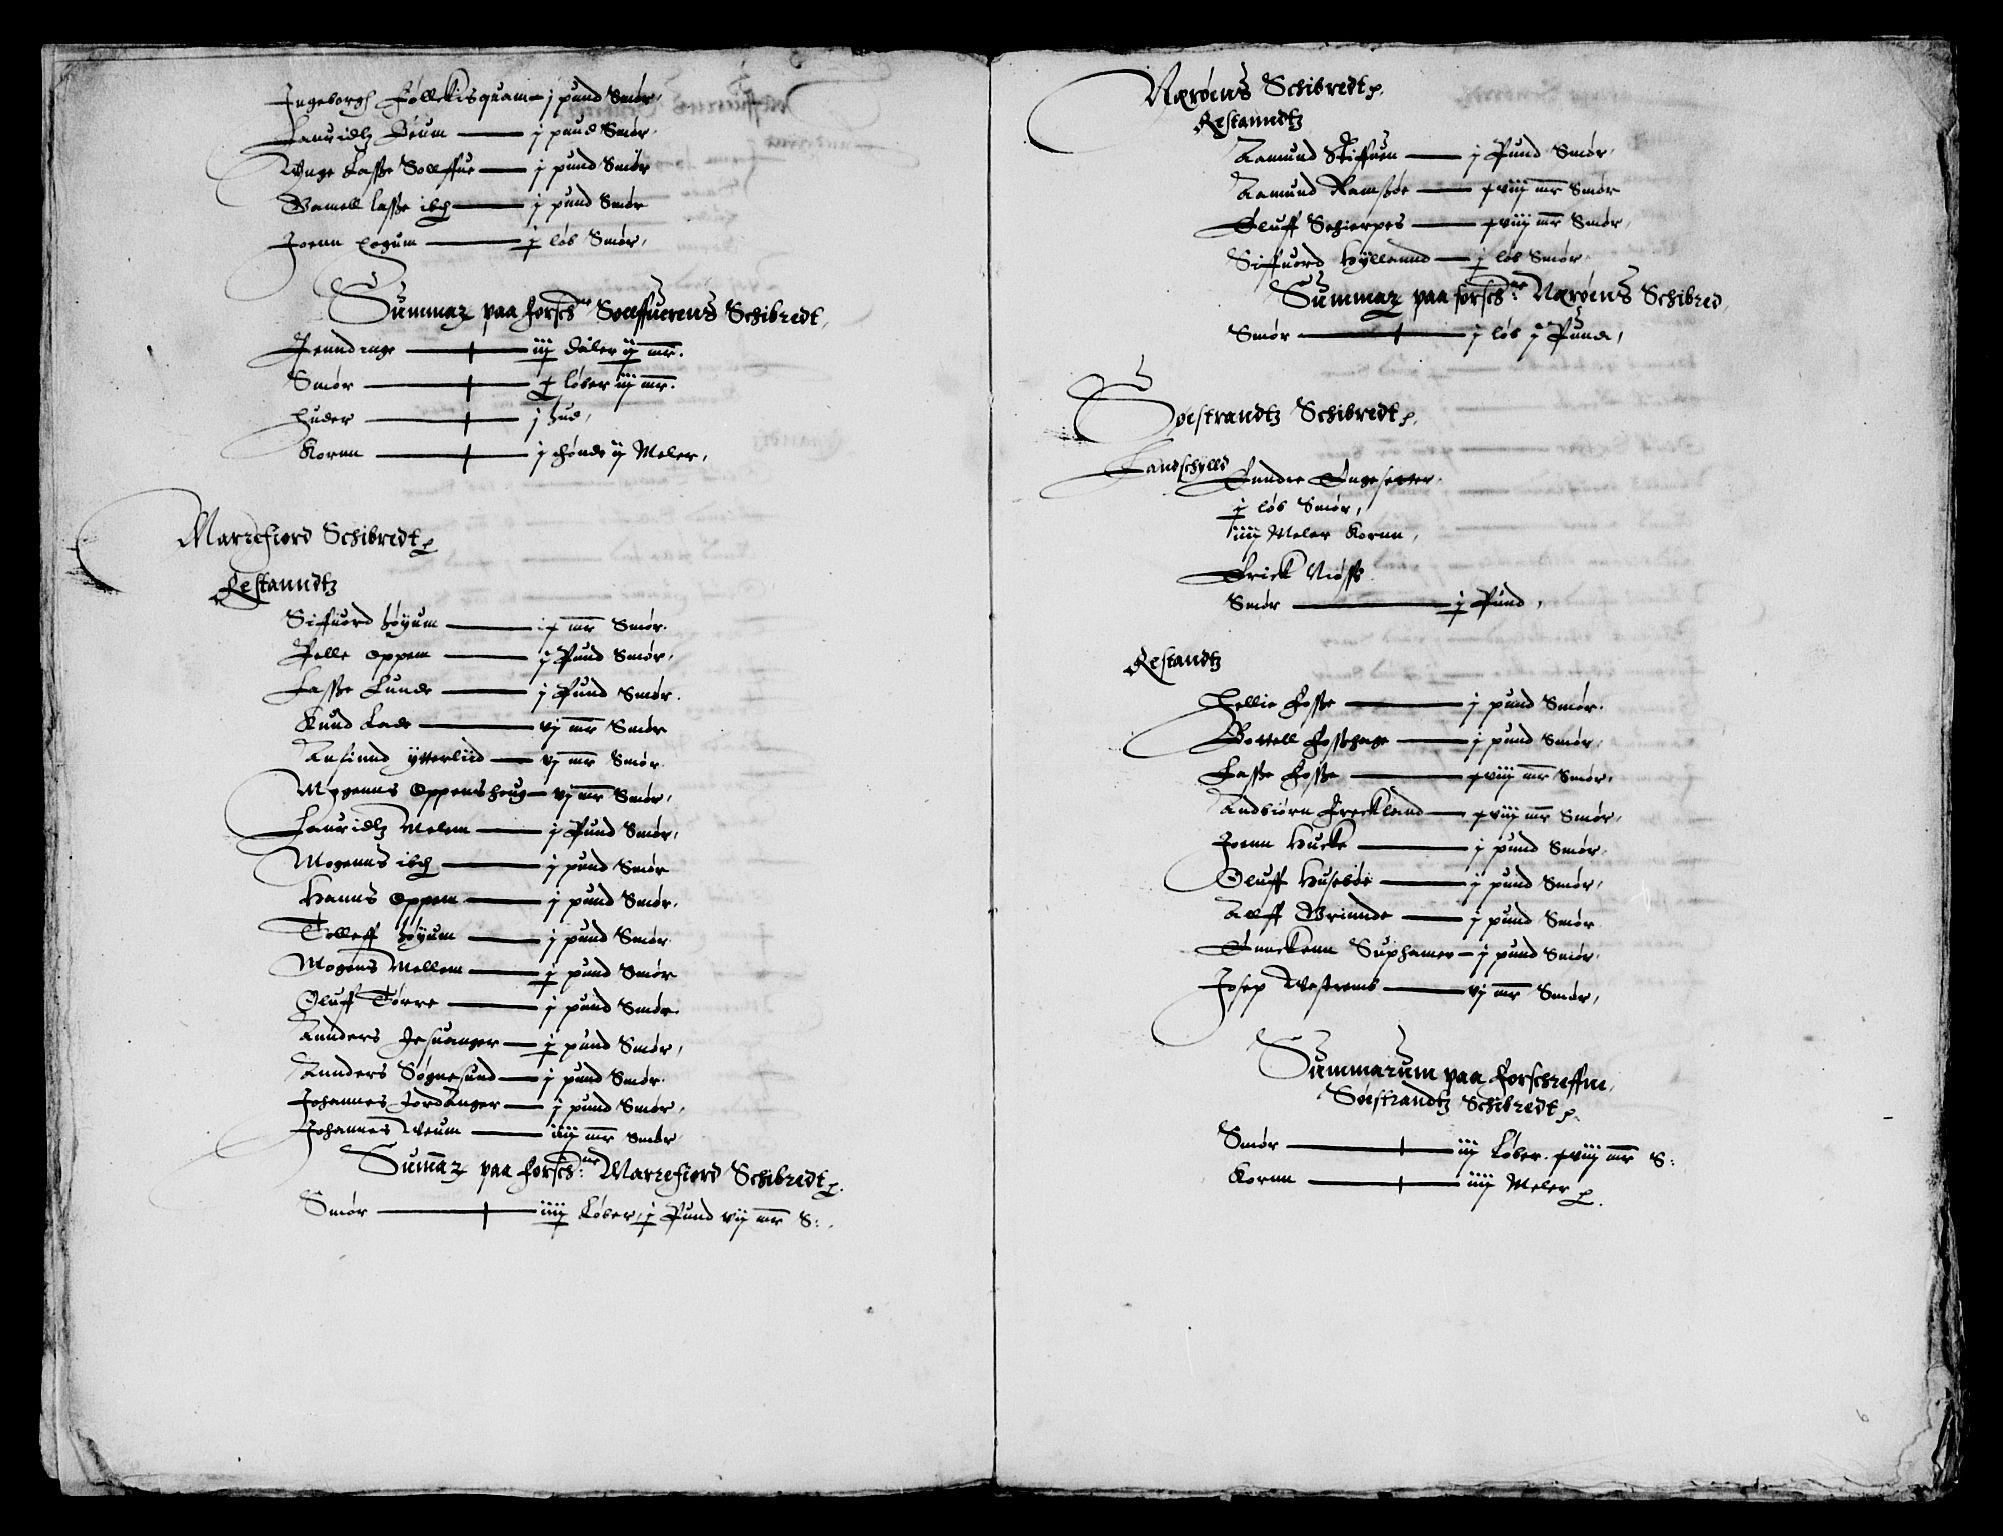 Ingeborgh Föllekisquam — j pund Smör
Lauridtz Öeum — j pund Smör
Wnge Lasse Sollffue — j pund Smör
Gamell lasse ibd — j pund Smör
Joenn Logum — j löb Smör
Summar paa forsch: ne Sollffuerens Schibredt
Penndinge — iij daler ij mr.
Smör — x löber iij mr.
Huder — j hud
Kornn — j thönde ij Meler
Marrefiord Schibredt
Restanndtz
Siffuord Höyum — ix mr Smör
Pelle Oppem — j Pund Smör
Lasse Lunde — j Pund Smör
Knud Lade — vj mr Smör
Aasinnd ytterliid — vj mr Smör
Mogenns Oppenshoug — vj mr Smör
Lauridtz Melem — j Pund Smör
Mogenns ibd — j pund Smör
Hanns Oppem — j pund Smör
Tolleff Höyum — j pund Smör
Mogens Mellem — j pund Smör
Oluff Törre — j pund Smör
Annders Jesuanger — j pund Smör
Annders Sognesund — j pund Smör
Johannes Jordanger — j pund Smör
Johannes Weum — iiij mr Smör
Summar paa forsch: ne Marrefiord Schibredt
Smör — iiij Löber, j Pund vij mr S:
Næröens Schibredt
Restanndtz
Aamund Stiffuen — j Pund Smör
Aamund Ramsöe — xviij mr Smör
Oluff Schierpes — xviij mr Smör
Siffuord Hyllennd — j löb Smör
Summar paa forsch: ne Næröens Schibred
Smör — j löb j Pund
Söestrandtz Schibredt
Landschylld
Enndre Engesetter
j löb Smör
iiij Meler Kornn
Erick Niöss
Smör — j Pund
Restandtz
Hellie Fosse — j pund Smör
Bottell Fosshage — j pund Smör
Lasse Fosse — xviij mr Smör
Andbiörn Freckland — xviij mr Smör
Joenn Hucke — j pund Smör
Oluff Huseböe — j pund Smör
Alff Brinnde — j pund Smör
Enneckenn Suphamer — j pund Smör
Josep Westrems — vj mr Smör
Summarum paa Forschreffne
Söestrandtz Schibredt
Smör — iij Löber xviij mr S:
Kornn — iiij Meler